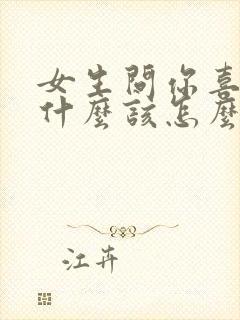 女生問你喜
什麼該怎麼
江卉